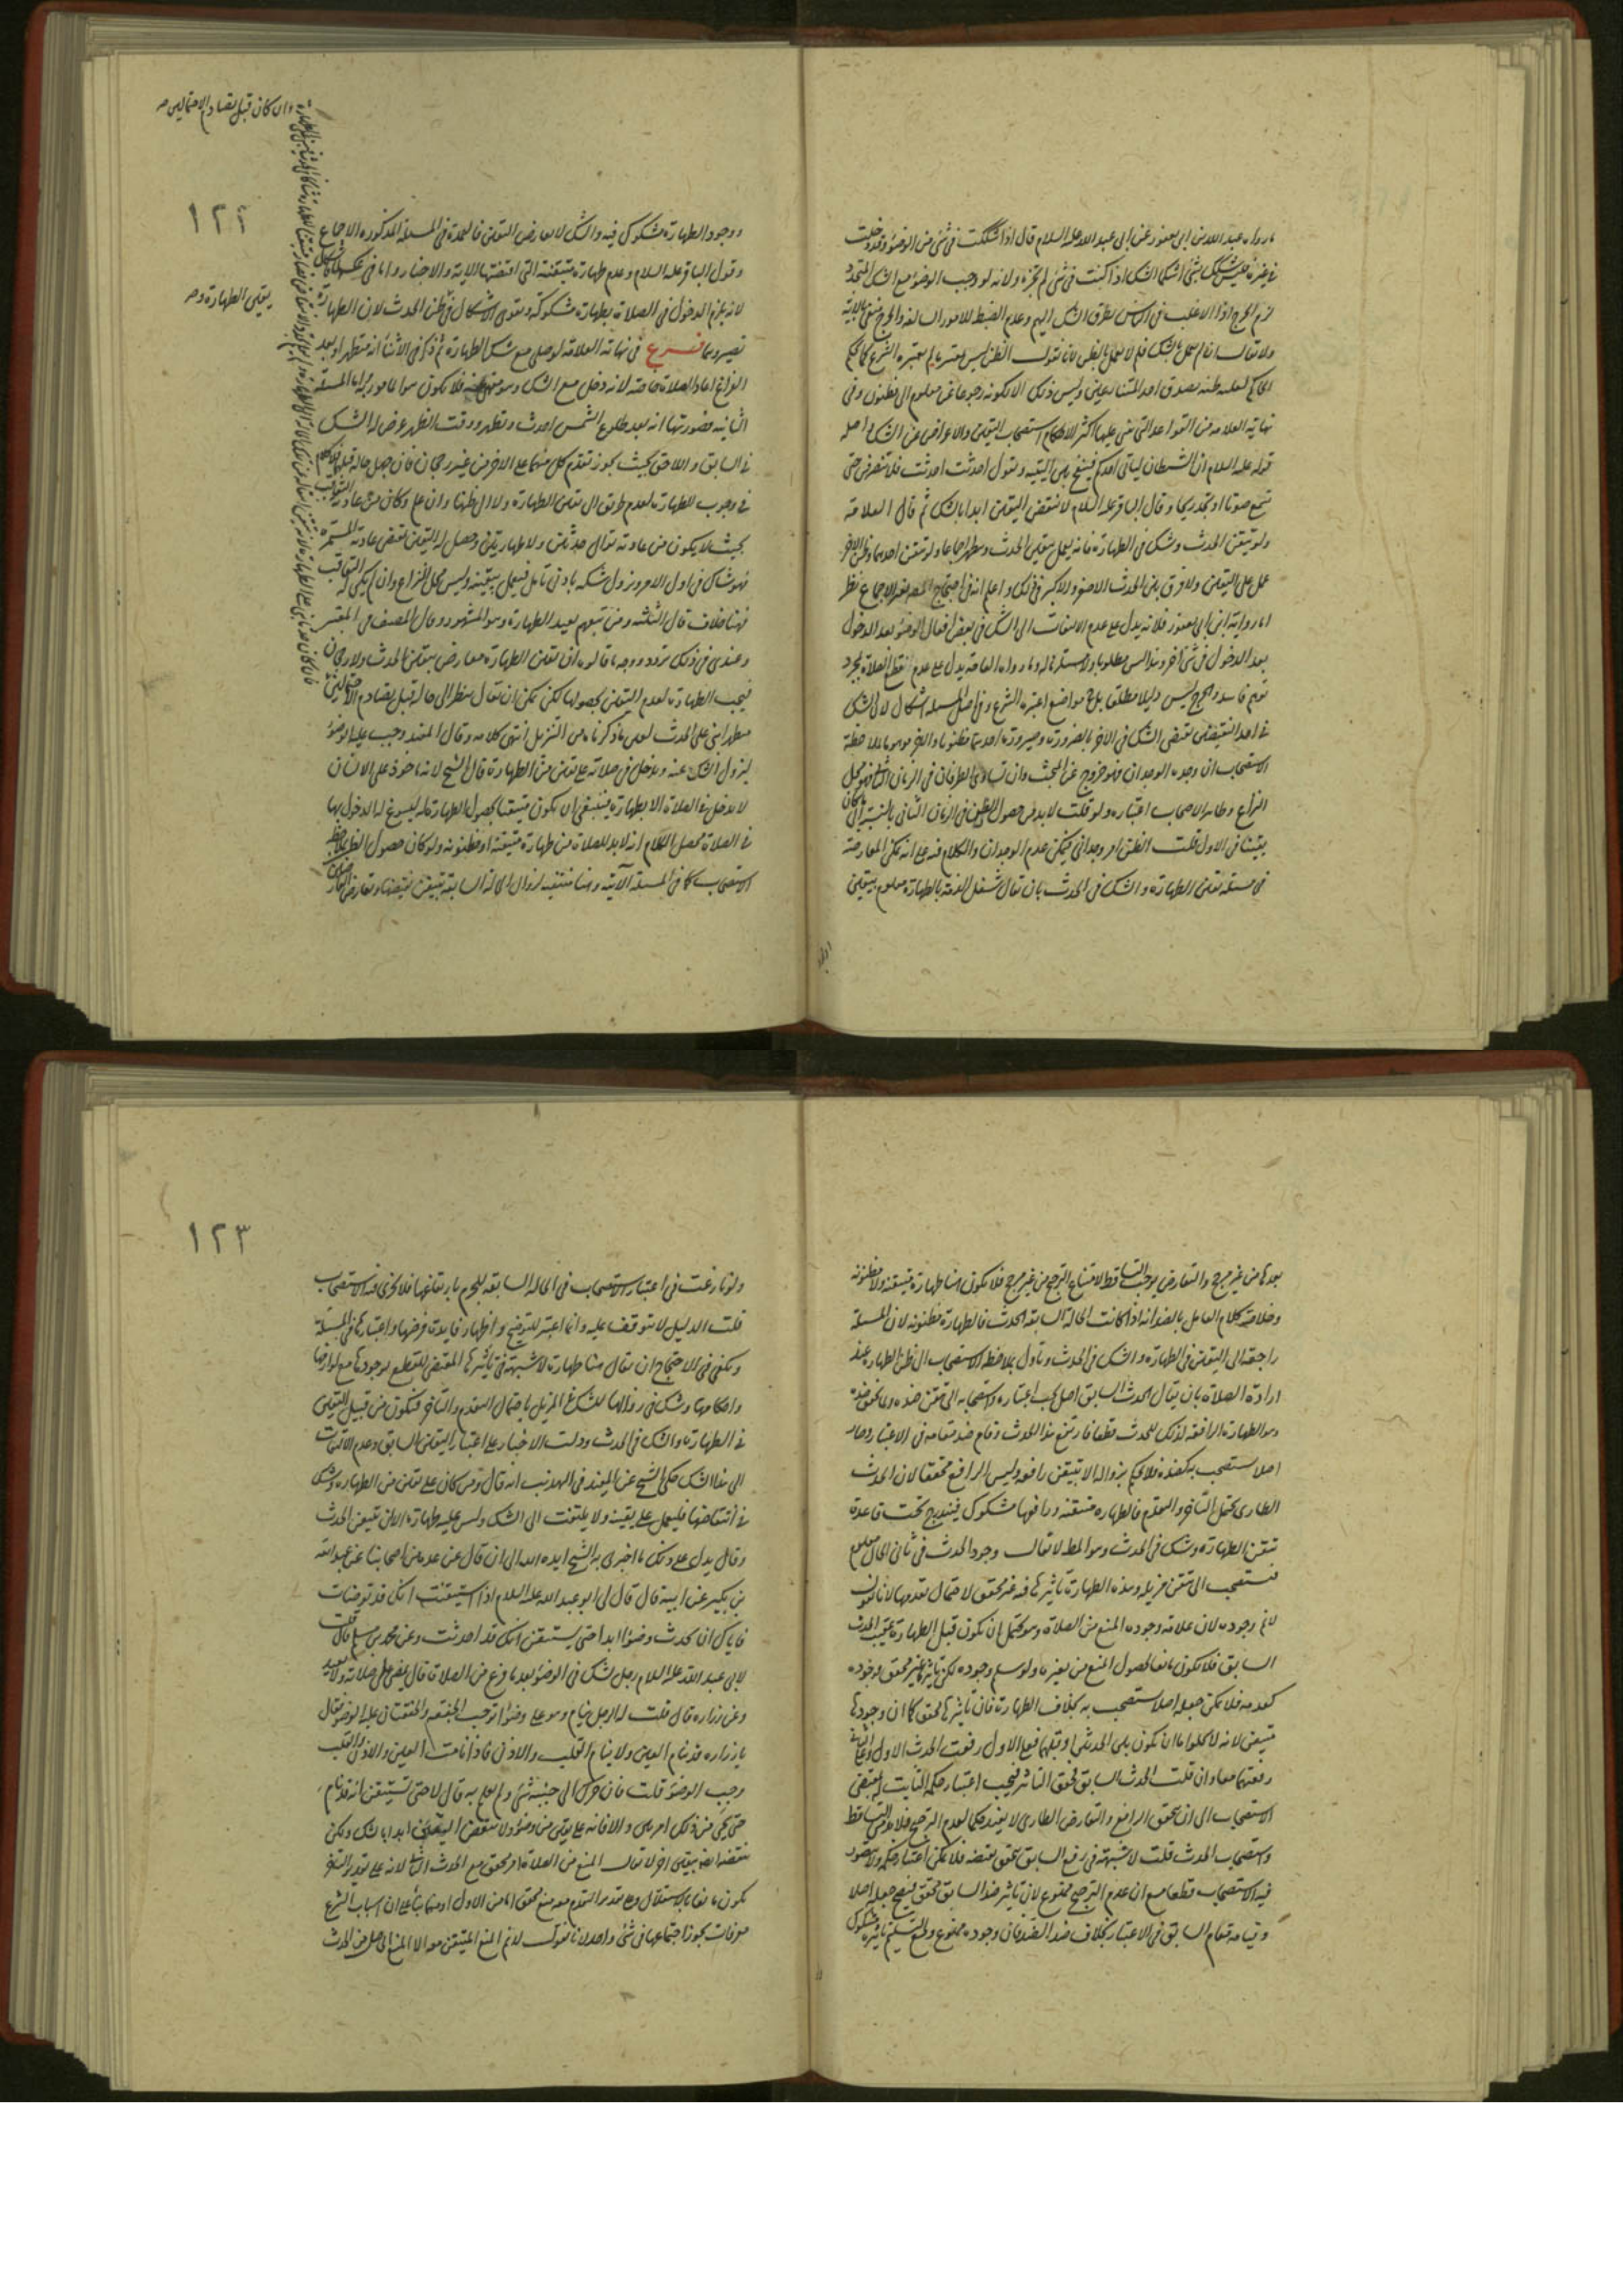 ما رواه عبد الله بن ابى يعفور عن ابى عبد الله عليه السلام قال اذا شككت فى شئ من الوضوء وقد دخلت
فى غيره فليس شكك بشئ انما الشك اذا كنت فى شئ لم تجزه ولانه لو وجب الوضوء مع الشك المتجدد
لزم الحرج اذ الاغلب فى الناس تطرق الشك اليهم وعدم الضبط للامور السالفة والحرج منفى بالاية
ولا يقال انا لم نعمل بالشك فلم لا نعمل بالظن لانا نقول الظن ليس معتبر ما لم يعتبره الشرع
الحاكم لغلبة ظنه بصدق احد المتنازعين وليس ذلك الا لكونه رجوعا عن معلوم الى مظنون وفى
نهاية العلامة من القواعد التى بنى عليها اكثر الاحكام استصحاب اليقين والاعراض عن الشك واصله
قوله عليه السلام ان الشيطان لياتى احدكم فينفخ بين اليتيه ويقول احدثت احدثت فلا ينصرفن حتى
تسمع صوتا او تجد ريحا وقال الباقر عليه السلام لا تنقض اليقين ابدا بالشك ثم قال العلامة
ولو تيقن الحدث وشك فى الطهارة فانه يعمل بيقين الحدث ويتطهر اجماعا ولو تيقن احدهما وظن الاخر
عمل على اليقين ولا فرق بين الحدث الاصغر والاكبر فى ذلك واعلم ان فى احتجاج المص بغير الاجماع نظر
اما رواية ابن ابى يعفور فلانه يدل على عدم الالتفات الى الشك فى بعض افعال الوضوء بعد الدخول
بعد الدخول فى شئ اخر وهذا ليس مطلوبا ولا مستلزما له وما رواه العامة يدل على عدم قطع الصلاة بمجرد
توهم فاسد والحرج ليس دليلا مطلقا بل فى مواضع اعتبره الشرع وفى اصل المسئلة اشكال لان الشك
فى احد النقيضين يقتضى الشك فى الاخر بالضرورة وصيرورة احدهما مظنونا والاخر موهوما بملاحظة
الاستصحاب ان وجده الوجدان فهو خروج عن المبحث وان تساوى الطرفان فى الزمان الثانى فهو محل
النزاع وظاهر الاصحاب اعتباره ولو قلت لا بد من حصول الظن فى الزمان الثانى بالنسبة الى ما كان
يقينا فى الاول قلت الظن امر وجدانى فيمكن عدم الوجدان والكلام فيه على انه يمكن المعارضة
فى مسئلة تيقن الطهارة والشك فى الحدث بان يقال شغل الذمة بالطهارة معلوم بيقين
وان كان قبل تصادم الاحتمالين صح
١٢٢
بيقين الطهارة وصح
ووجود الطهارة مشكوك فيه والشك لا يعارض اليقين فالعمدة فى المسئلة المذكورة الاجماع
وقول الباقر عليه السلام وعدم طهارة متيقنة التى اقتضتها الاية والاخبار واما فى عكسها
لانه يلزم الدخول فى الصلاة بطهارة مشكوكة ويقوى الاشكال فى ظن الحدث لان الطهارة
تصير وهما فرع فى نهاية العلامة لو صلى مع شك الطهارة ثم ذكر فى الاثناء انه متطهر او بعد
الفراغ اعاد الصلاة خاصة لانه دخل مع الشك وهو منهى عنه فلا يكون مواليا مامور به اما المسئلة
الثانية فصورتها انه بعد طلوع الشمس احدث وتطهر ووقت الظهر عرض له الشك
فى السابق واللاحق بحيث يجوز تقدم كل منهما على الاخر من غير رجحان فان جهل حاله قبلهما
فى وجوب الطهارة لعدم طريق الى تيقن الطهارة ولا الى ظنها وان علم وكان من عادته
بحيث لا يكون من عادته توالى حدثين ولا طهارتين وحصل له اليقين بمقتضى عادته المستمرة
فهو شاك فى اول الامر ويزول شكه بادنى تامل فيعمل بيقينه وليس محل النزاع وان لم يكن له
فهنا خلاف قال الثلثة ومن تبعهم يعيد الطهارة وهو المشهور وقال المصنف فى المعتبر
وعندى فى ذلك تردد ووجه ما قالوه ان تيقن الطهارة معارض بتيقن الحدث ولا رجحان
فيجب الطهارة لعدم اليقين بحصولها لكن يمكن ان يقال ينظر الى حاله قبل تصادم الاحتمالين
متطهرا بنى على الحدث لعين ما ذكرناه من التنزيل انتهى كلامه وقال المفيد وجب عليه الوضوء
ليزول الشك عنه ويدخل فى صلاته على يقين من الطهارة قال الشيخ لانه ماخوذ على الانسان
لا يدخل فى الصلاة الا بطهارة فينبغى ان يكون متيقنا بحصول الطهارة له ليسوغ له الدخول بها
فى الصلاة محصل الكلام انه لا بد للصلاة من طهارة متيقنة او مظنونة ولو كان حصول الظن
الاستصحاب كما فى المسئلة الآتية وهنا منتفية لزوال الحالة السابقة بتيقن نقيضها وتعارض
بعدها من غير مرجح والتعارض يوجب التساقط لامتناع الترجيح من غير مرجح فلا يكون هنا طهارة متيقنة ولا مظنونة
وخلاصة كلام القايل بالضد انه اذا كانت الحالة السابقة الحدث فالطهارة مظنونة لان المسئلة
راجعة الى اليقين فى الطهارة والشك فى الحدث ويأول بملاحظة الاستصحاب الى ظن الطهارة عند
ارادة الصلاة بان يقال الحدث السابق اصل يجب اعتباره واستصحابه الى تيقن ضده وما تحقق ضده
وهو الطهارة الرافعة لذلك الحدث قطعا فارتفع هذا الحدث وقام ضده مقامه فى الاعتبار وصار
اصلا يستصحب به كضده فلا يحكم بزواله الا بتيقن رافعه وليس الرافع محققا لان الحدث
الطارى يحتمل التاخر والتقدم فالطهارة متيقنة ورافعها مشكوك فيندرج تحت قاعدة
تيقن الطهارة وشك فى الحدث وهو المط لا يقال وجود الحدث فى ثانى الحال معلوم
فيستصحب الى تيقن مزيله وهذه الطهارة تاثيرها فيه غير محقق لاحتمال تقدمها لانا نقول
لا نم وجوده لان علامة وجوده المنع من الصلاة وهو يحتمل ان يكون قبل الطهارة عقيب الحدث
السابق فلا يكون مانعا لحصول المنع من غيره ولو سلم وجوده لكن تاثيره غير محقق فوجوده
كعدمه فلا يمكن جعله اصلا يستصحب به بخلاف الطهارة فان تاثيرها محقق كما ان وجودها
متيقن لانه لا يخلو اما ان يكون بين الحدثين او قبلهما فعلى الاول رفعت الحدث الاول وعلى الثانى
رفعتهما معا وان قلت الحدث السابق محقق التاثير فيجب اعتبار حكمه الثابت بمقتضى
الاستصحاب الى ان يتحقق الرافع والتعارض الطارى لا يفيد حكما لعدم الترجيح فلا بد من التساقط
واستصحاب الحدث قلت لا شبهة فى رفع السابق بتحقق نقيضه فلا يمكن اعتبار حكمه ولا يتصور
فيه الاستصحاب قطعا مع ان عدم الترجيح ممنوع لان تاثير ضد السابق محقق فيصح جعله اصلا
وقيامه مقام السابق فى الاعتبار بخلاف ضد الضد فان وجوده ممنوع ومع التسليم تاثيره مشكوك
١٢٣
ولو نازعت فى اعتبار الاستصحاب فى الحالة السابقة للجزم بارتفاعها فلا يجرى فيه الاستصحاب
قلت الدليل لا يتوقف عليه وانما اعتبر للتوضيح واظهار فايدة فرضها واعتبارها فى المسئلة
ويكفى فى الاحتجاج ان يقال هنا طهارة لا شبهة فى تاثيرها المقتضى للقطع بوجودها مع لوازمها
واحكامها وشك فى زوالها للشك فى المزيل باحتمال التقدم والتاخر فتكون من قبيل اليقين
فى الطهارة والشك فى الحدث ودلت الاخبار على اعتبار اليقين السابق وعدم الالتفات
الى هذا الشك حكى الشيخ عن المفيد فى التهذيب انه قال ومن كان على يقين من الطهارة وشك
فى انتقاضها فليعمل على يقينه ولا يلتفت الى الشك وليس عليه طهارة الا ان يتيقن الحدث
وقال يدل على ذلك ما اخبرنى به الشيخ ايده الله الى ان قال عن عدة من اصحابنا عن عبد الله
بن بكير عن ابيه قال قال لى ابو عبد الله عليه السلام اذا استيقنت انك قد توضات
فاياك ان تحدث وضوءا ابدا حتى يستيقن انك قد احدثت وعن محمد بن مسلم قال قلت
لابى عبد الله عليه السلام رجل شك فى الوضوء بعد ما فرغ من الصلاة قال يمضى على صلاته ولا يعيد
وعن زرارة قال قلت له الرجل ينام وهو على وضوء اتوجب الخفقة والخفقتان عليه الوضوء فقال
يا زرارة قد تنام العين ولا ينام القلب والاذن فاذا نامت العين والاذن والقلب
وجب الوضوء قلت فان حرك الى جنبه شئ ولم يعلم به قال لا حتى تستيقن انه قد نام
حتى يجئ من ذلك امر بين والا فانه على يقين من وضوئه ولا تنقض اليقين ابدا بالشك ولكن
تنقضه ابدا بيقين اخر لا يقال المنع من الصلاة امر محقق مع الحدث الثانى لانه على تقدير التاخر
يكون مانعا بالاستقلال وعلى تقدير التقدم معه منع محقق اما من الاول او منهما بناء على ان اسباب الشرع
معرفات يجوز اجتماعها فى شئ واحد لانا نقول لا نم المنع المتيقن هو الا المنع الحاصل من الحدث